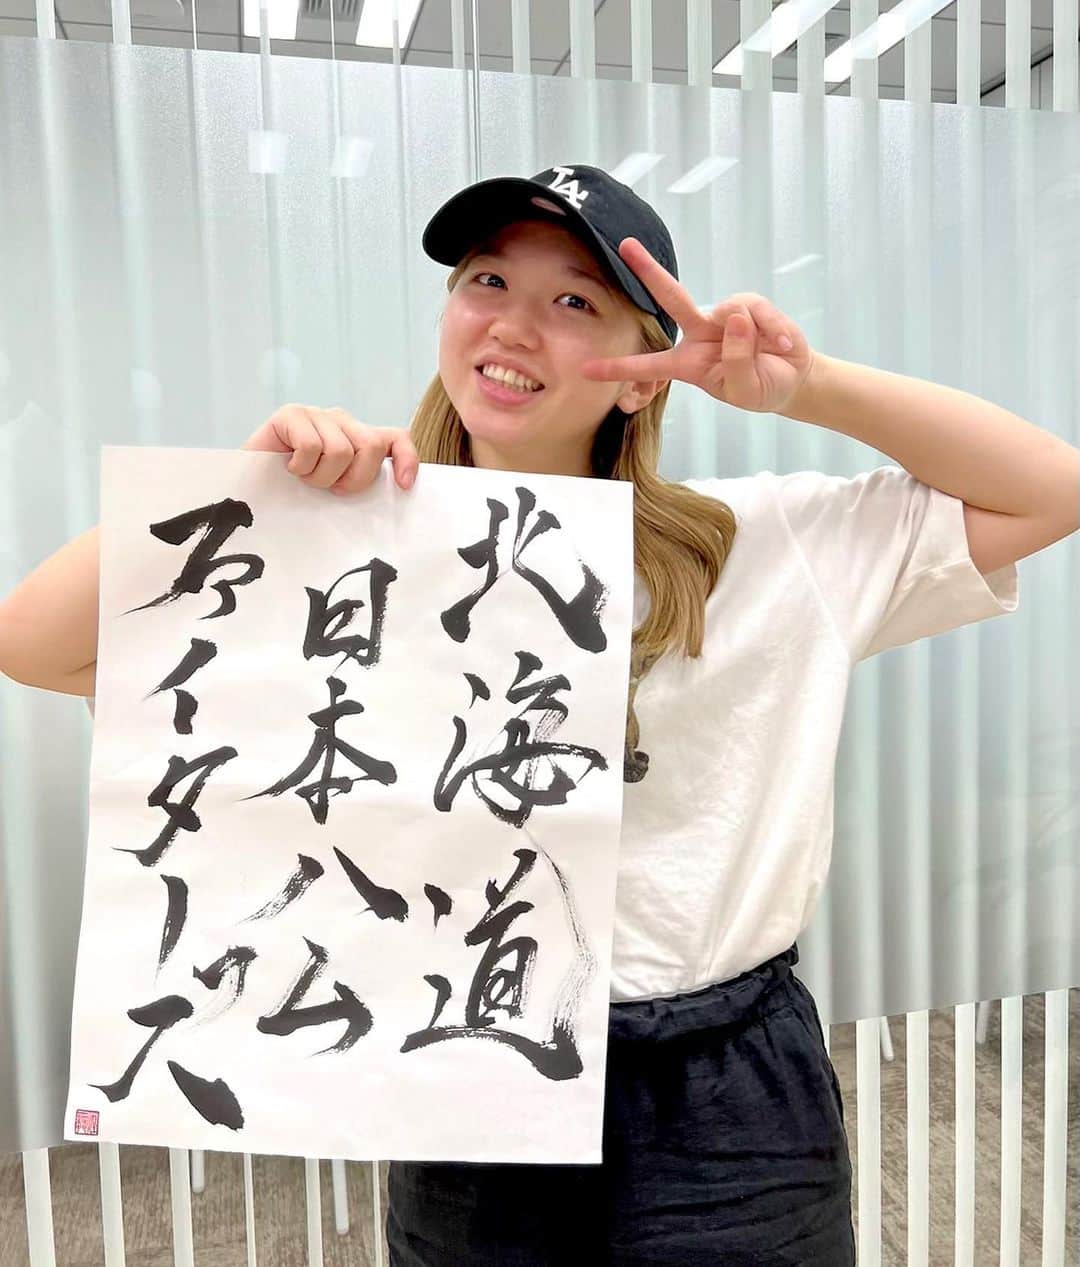 北海道
日本ハム
ファイターズ
LA